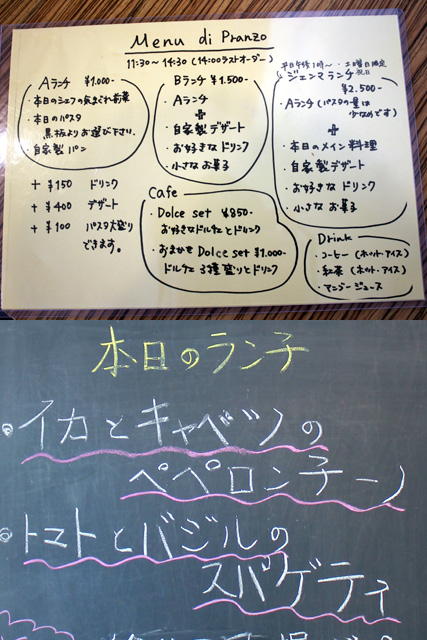 Menu di Pranzo
11:30~14:30 (14:00ラストオーダー)
Aランチ ¥1.000-
・本日のシェフの気まぐれ前菜
・本日のパスタ
黒板よりお選び下さい。
・自家製パン
+ ¥150 ドリンク
+ ¥400 デザート
+ ¥100 パスタ大盛り
できます。
Bランチ ¥1.500-
・Aランチ
+
・自家製デザート
・お好きなドリンク
・小さなお菓子
平日午後1時~・土曜日限定
祝日
ジェンマランチ
¥2.500-
・Aランチ(パスタの量は
少なめです)
+
・本日のメイン料理
・自家製デザート
・お好きなドリンク
・小さなお菓子
Cafe
・Dolce set ¥850-
お好きなドルチェとドリンク
・おまかせDolce set ¥1.000-
ドルチェ3種盛りとドリンク
Drink
・コーヒー(ホット・アイス)
・紅茶(ホット・アイス)
・マンゴージュース
本日のランチ
・イカとキャベツの
ペペロンチーノ
・トマトとバジルの
スパゲティ